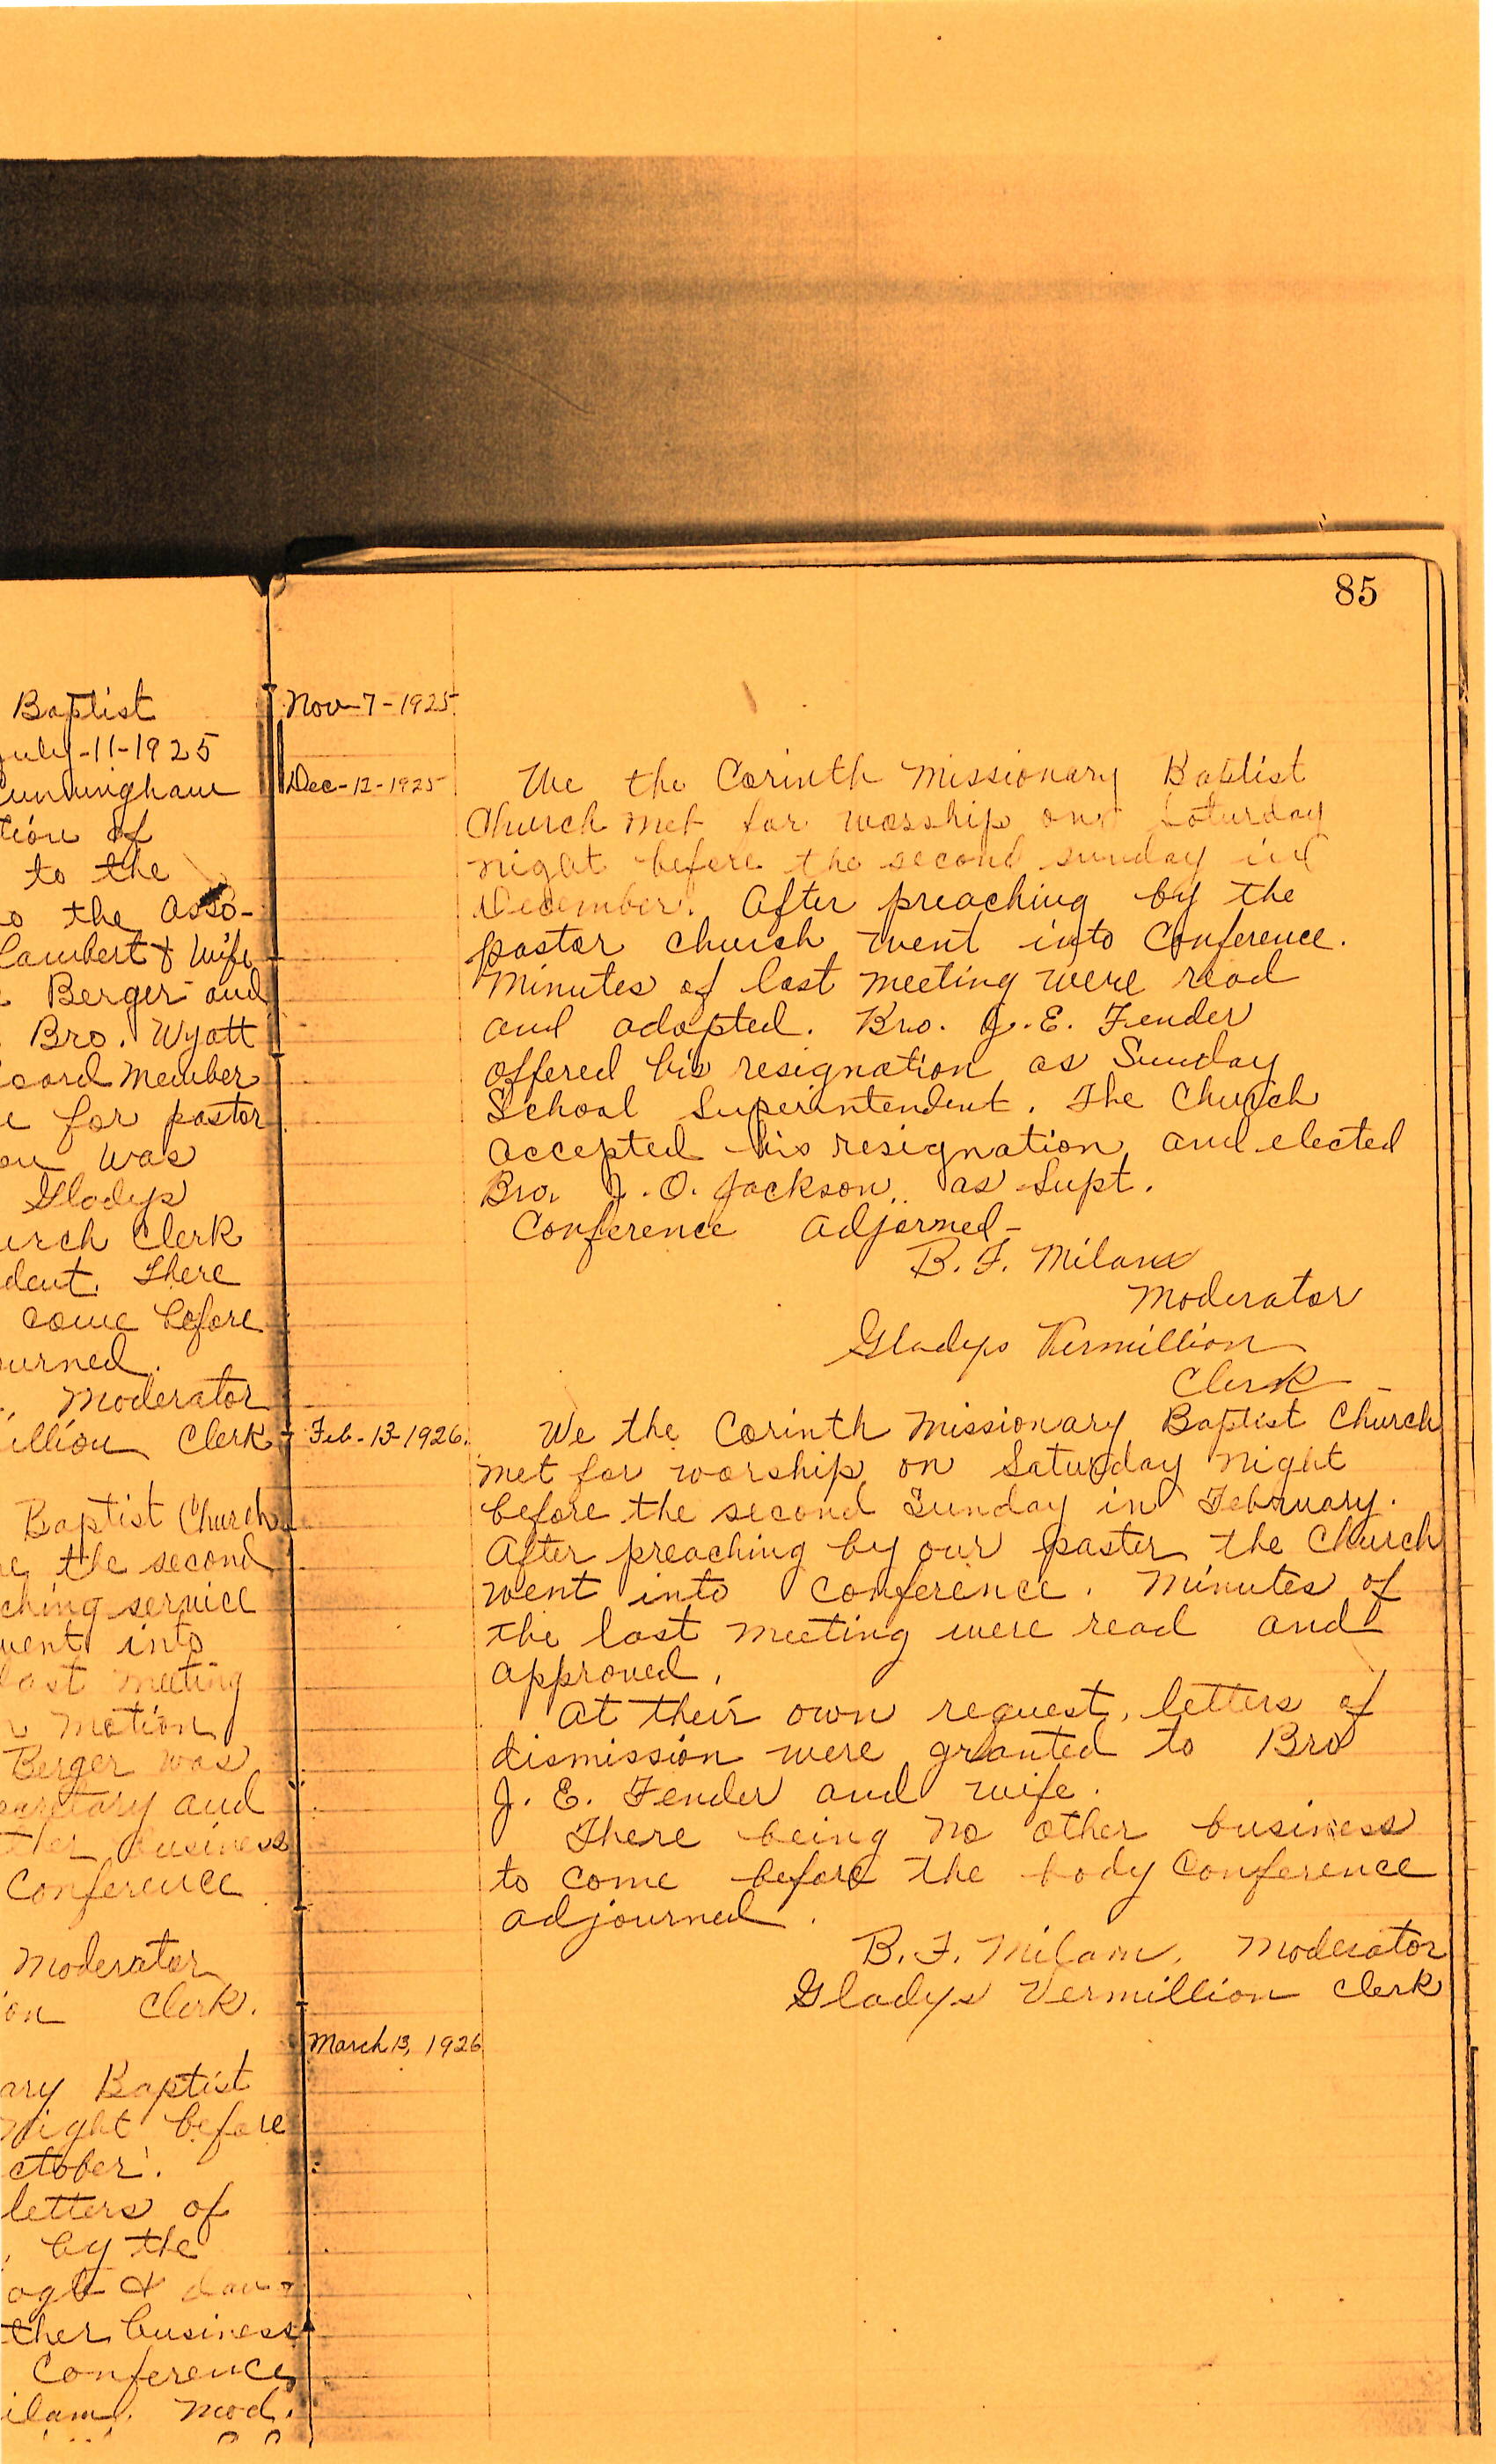 85
Baptist
July-11-1925
Cunningham
tion of
to the
to the Asso-
Lambert & Wife
Berger and
Bro. Wyatt
oard Member
for pastor
on was
Gladys
urch Clerk
dent. There
come before
ourned.
Moderator
illion Clerk
Baptist Church
the second
ching service
went into
last meeting
Motion
Berger was
ecretary and
ther business
Conference
Moderator
on Clerk.
ary Baptist
night before
ctober.
letters of
by the
&
ther business
Conference
ilam. Mod.
Nov-7-1925
Dec-12-1925
We the Corinth Missionary Baptist
Church met for worship on Saturday
night before the second sunday in
December. After preaching by the
pastor church went into Conference.
Minutes of last meeting were read
and adopted. Bro. J. E. Fender
offered his resignation as Sunday
School Superintendent. The Church
accepted his resignation and elected
Bro. J. O. Jackson as Supt.
Conference adjorned-
B. F. Milam
Moderator
Gladys Vermillion
Clerk
Feb-13-1926.
We the Corinth Missionary Baptist Church
met for worship on Saturday night
before the second Sunday in February.
After preaching by our paster the Church
went into Conference. Minutes of
the last meeting were read and
approved.
At their own request, letters of
dismission were granted to Bro
J. E. Fender and wife.
There being no other business
to come before the body Conference
adjourned.
B. F. Milam. Moderator
Gladys Vermillion Clerk
March 13, 1926